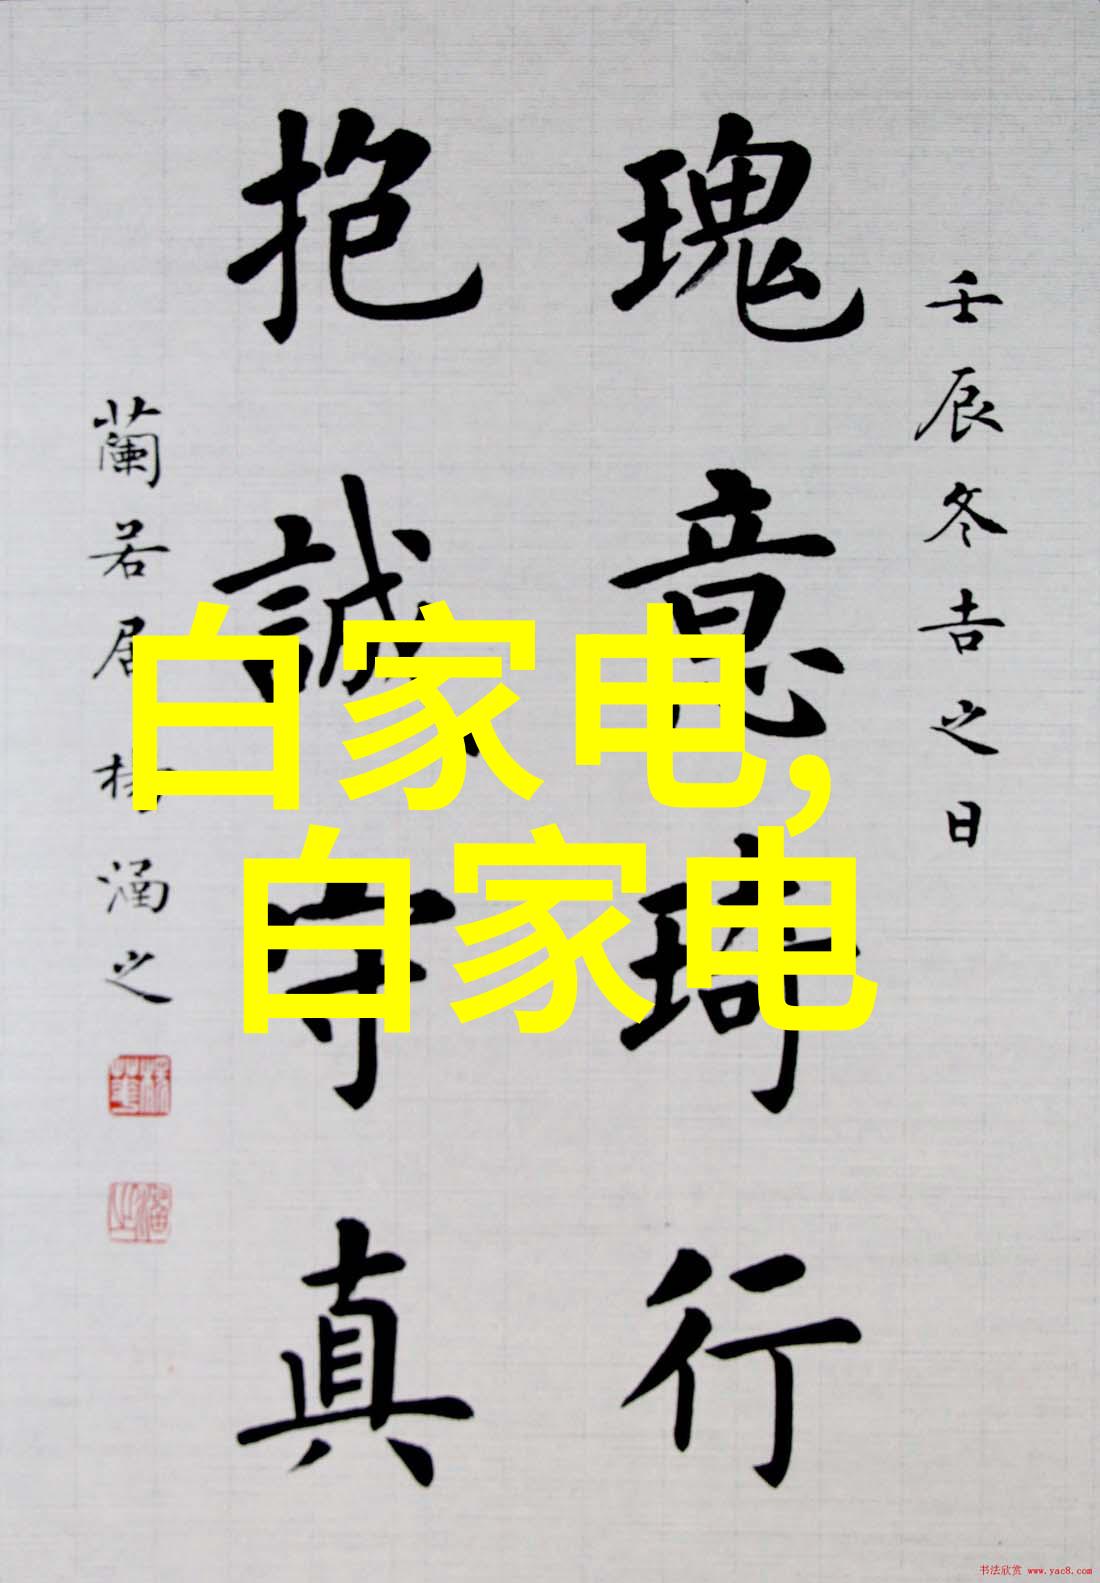 壬辰冬吉之日
瑰意琦行
抱誠守真
蘭若居楊涵之
白家电,
自家电
书法欣赏 www.yac8.com